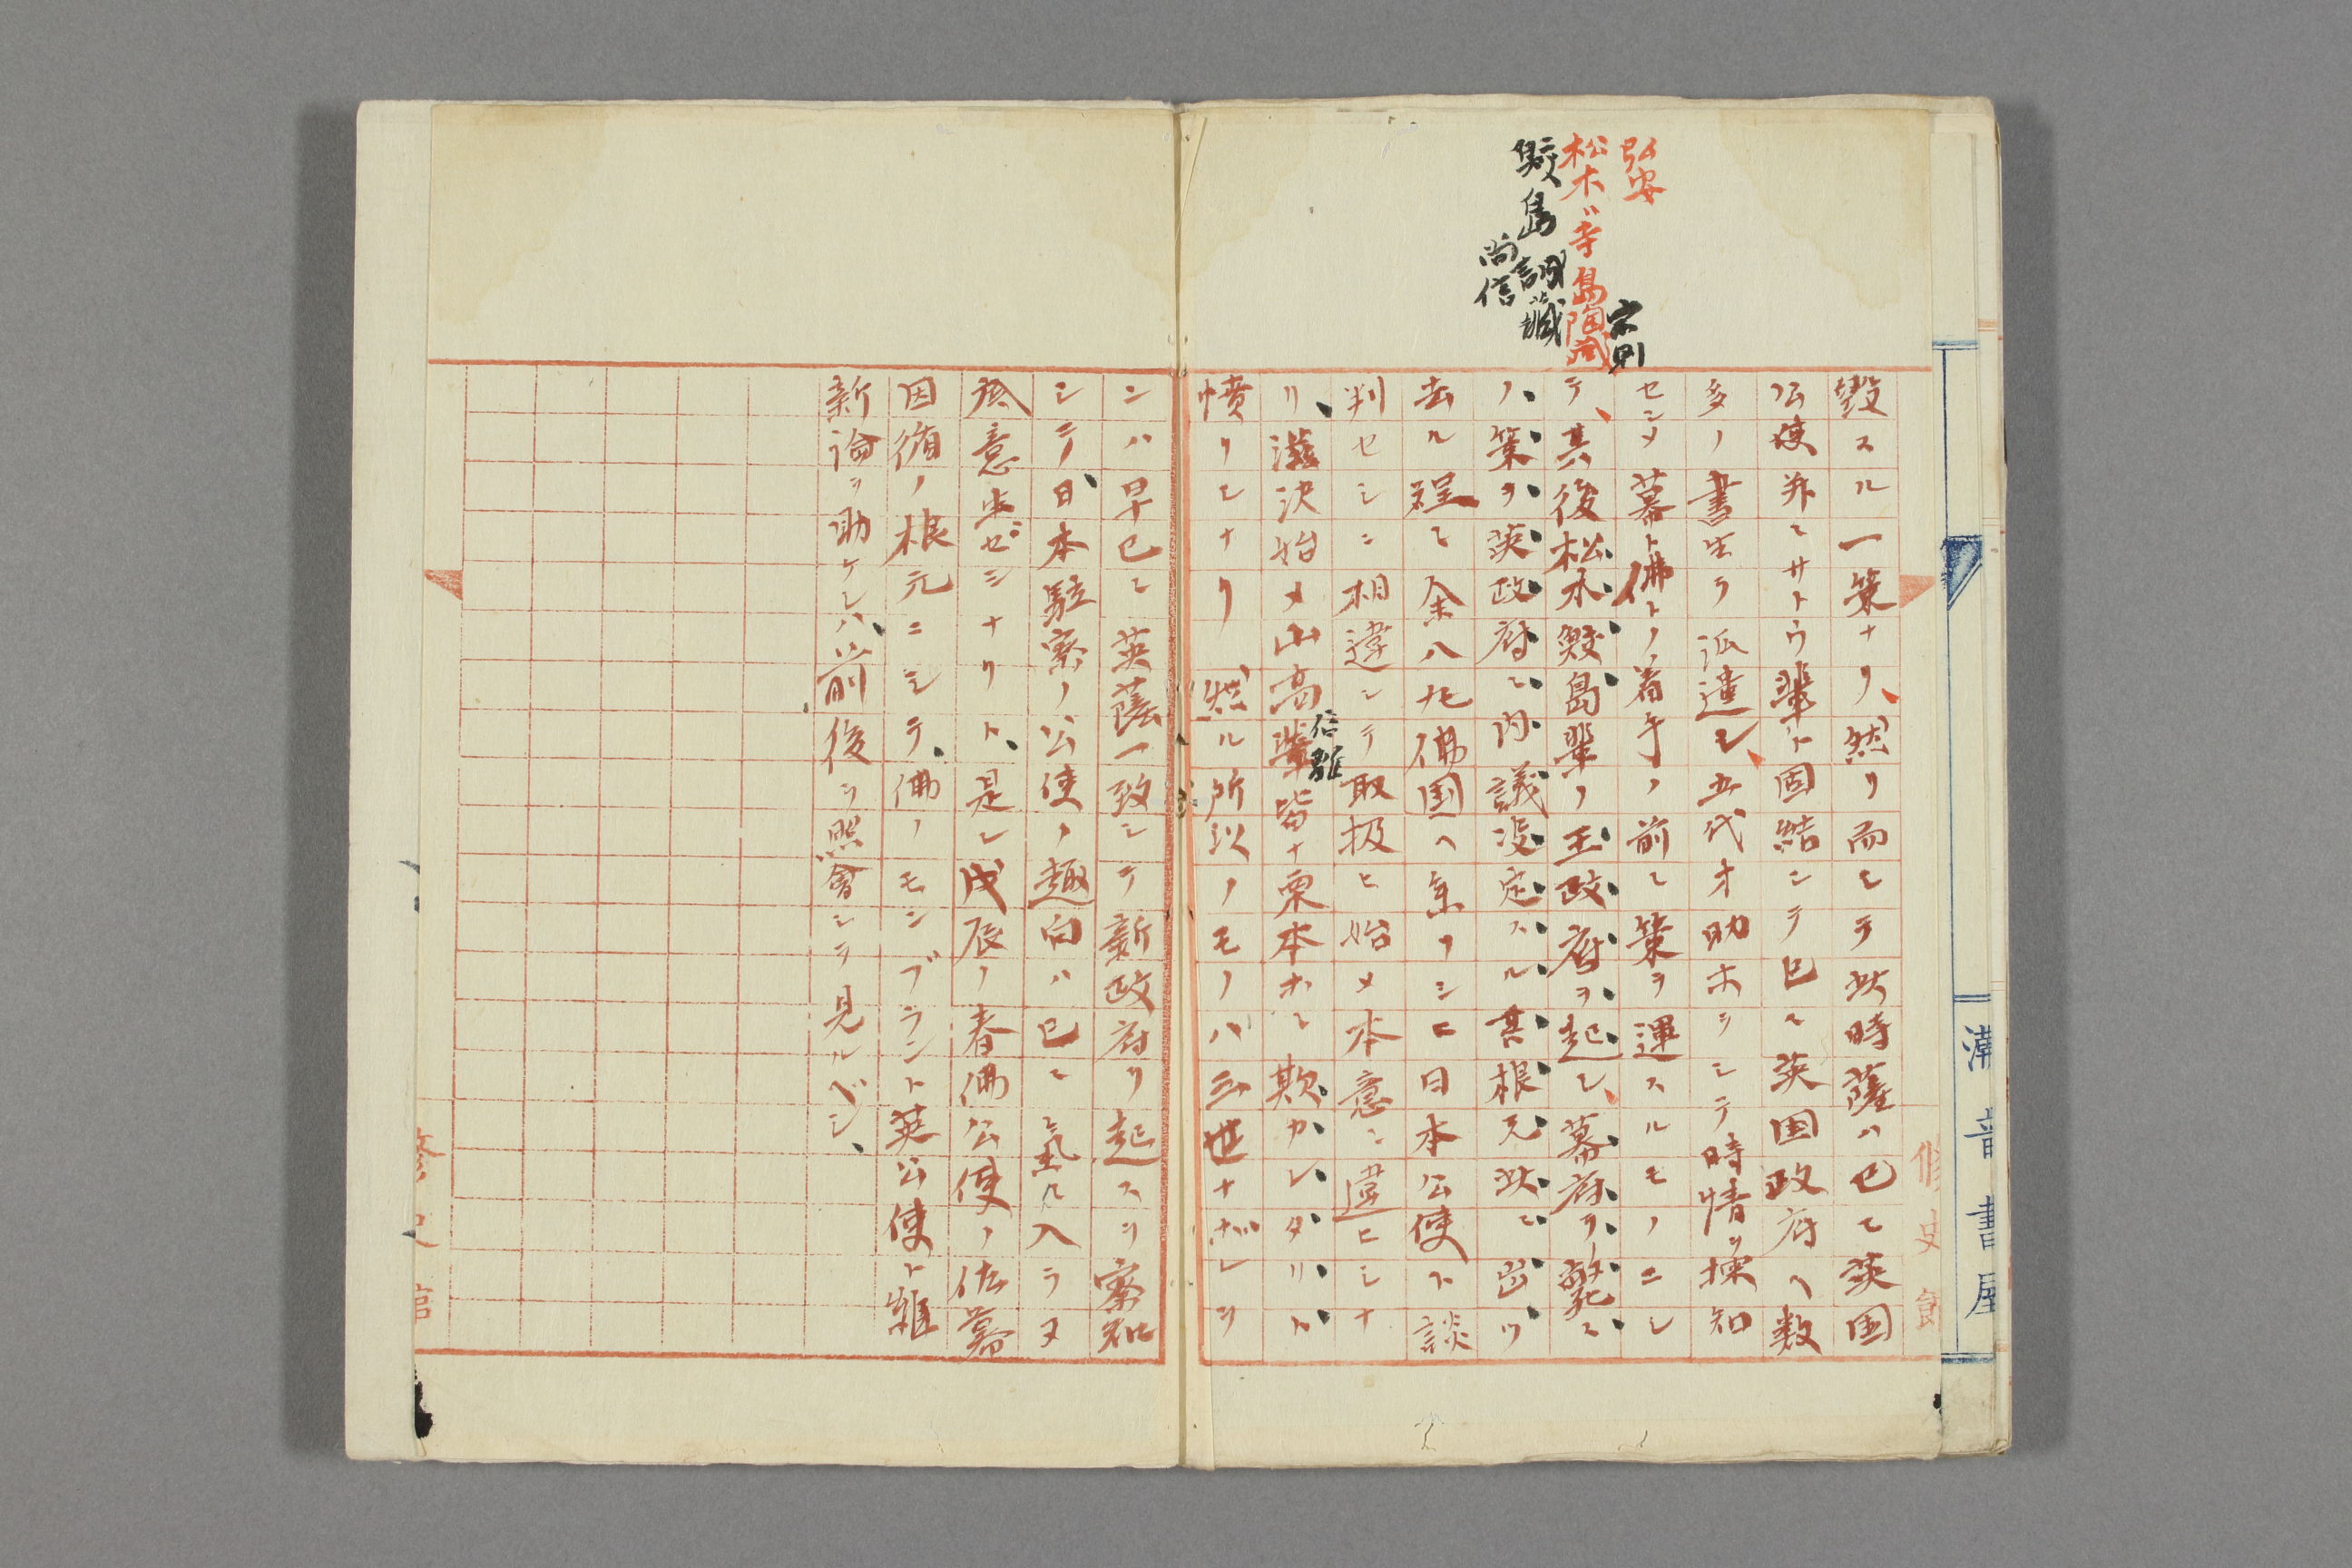 弘安
松木ハ寺島陶蔵
宗則
鮫島誠蔵
尚信
毀スル一策ナリ、然リ而シテ此時薩ハ已ニ英国
公使并ニサトウ輩ト固結シテ已ニ英国政府ヘ数
多ノ書生ヲ派遣シ、五代才助ホヲシテ時情ヲ探知
センメ幕ト佛トノ着手ノ前ニ策ヲ運スルモノニシ
テ、其後松木鮫島輩ノ王政府ヲ起シ、幕府ヲ斃ニ
ノ策ヲ英政府ニ内議決定スル其根元此ニ出ツ
去ル程ニ余ハ北佛国ヘ参リシニ日本公使ト談
判セシニ相違シテ取扱ヒ始メ本意ニ違ヒシナ
リ、渋沢始メ山高輩皆ナ栗本ホニ欺カレタリト
信離
憤リシナリ然ル所以ノモノハ三世ナポレヲ
ンハ早已ニ英薩一致シテ新政府ヲ起スヲ察知
シテ、日本駐箚ノ公使ノ趣向ハ已ニ氣ニ入ラヌ
意味ゼシナリト、是レ戊辰ノ春佛公使ノ佐幕
因循ノ根元ニシテ、佛ノモンブラント英公使ト離
新論ヲ助ケシハ、前後ヲ照會シテ見ルベシ、
修史館
溝部書屋